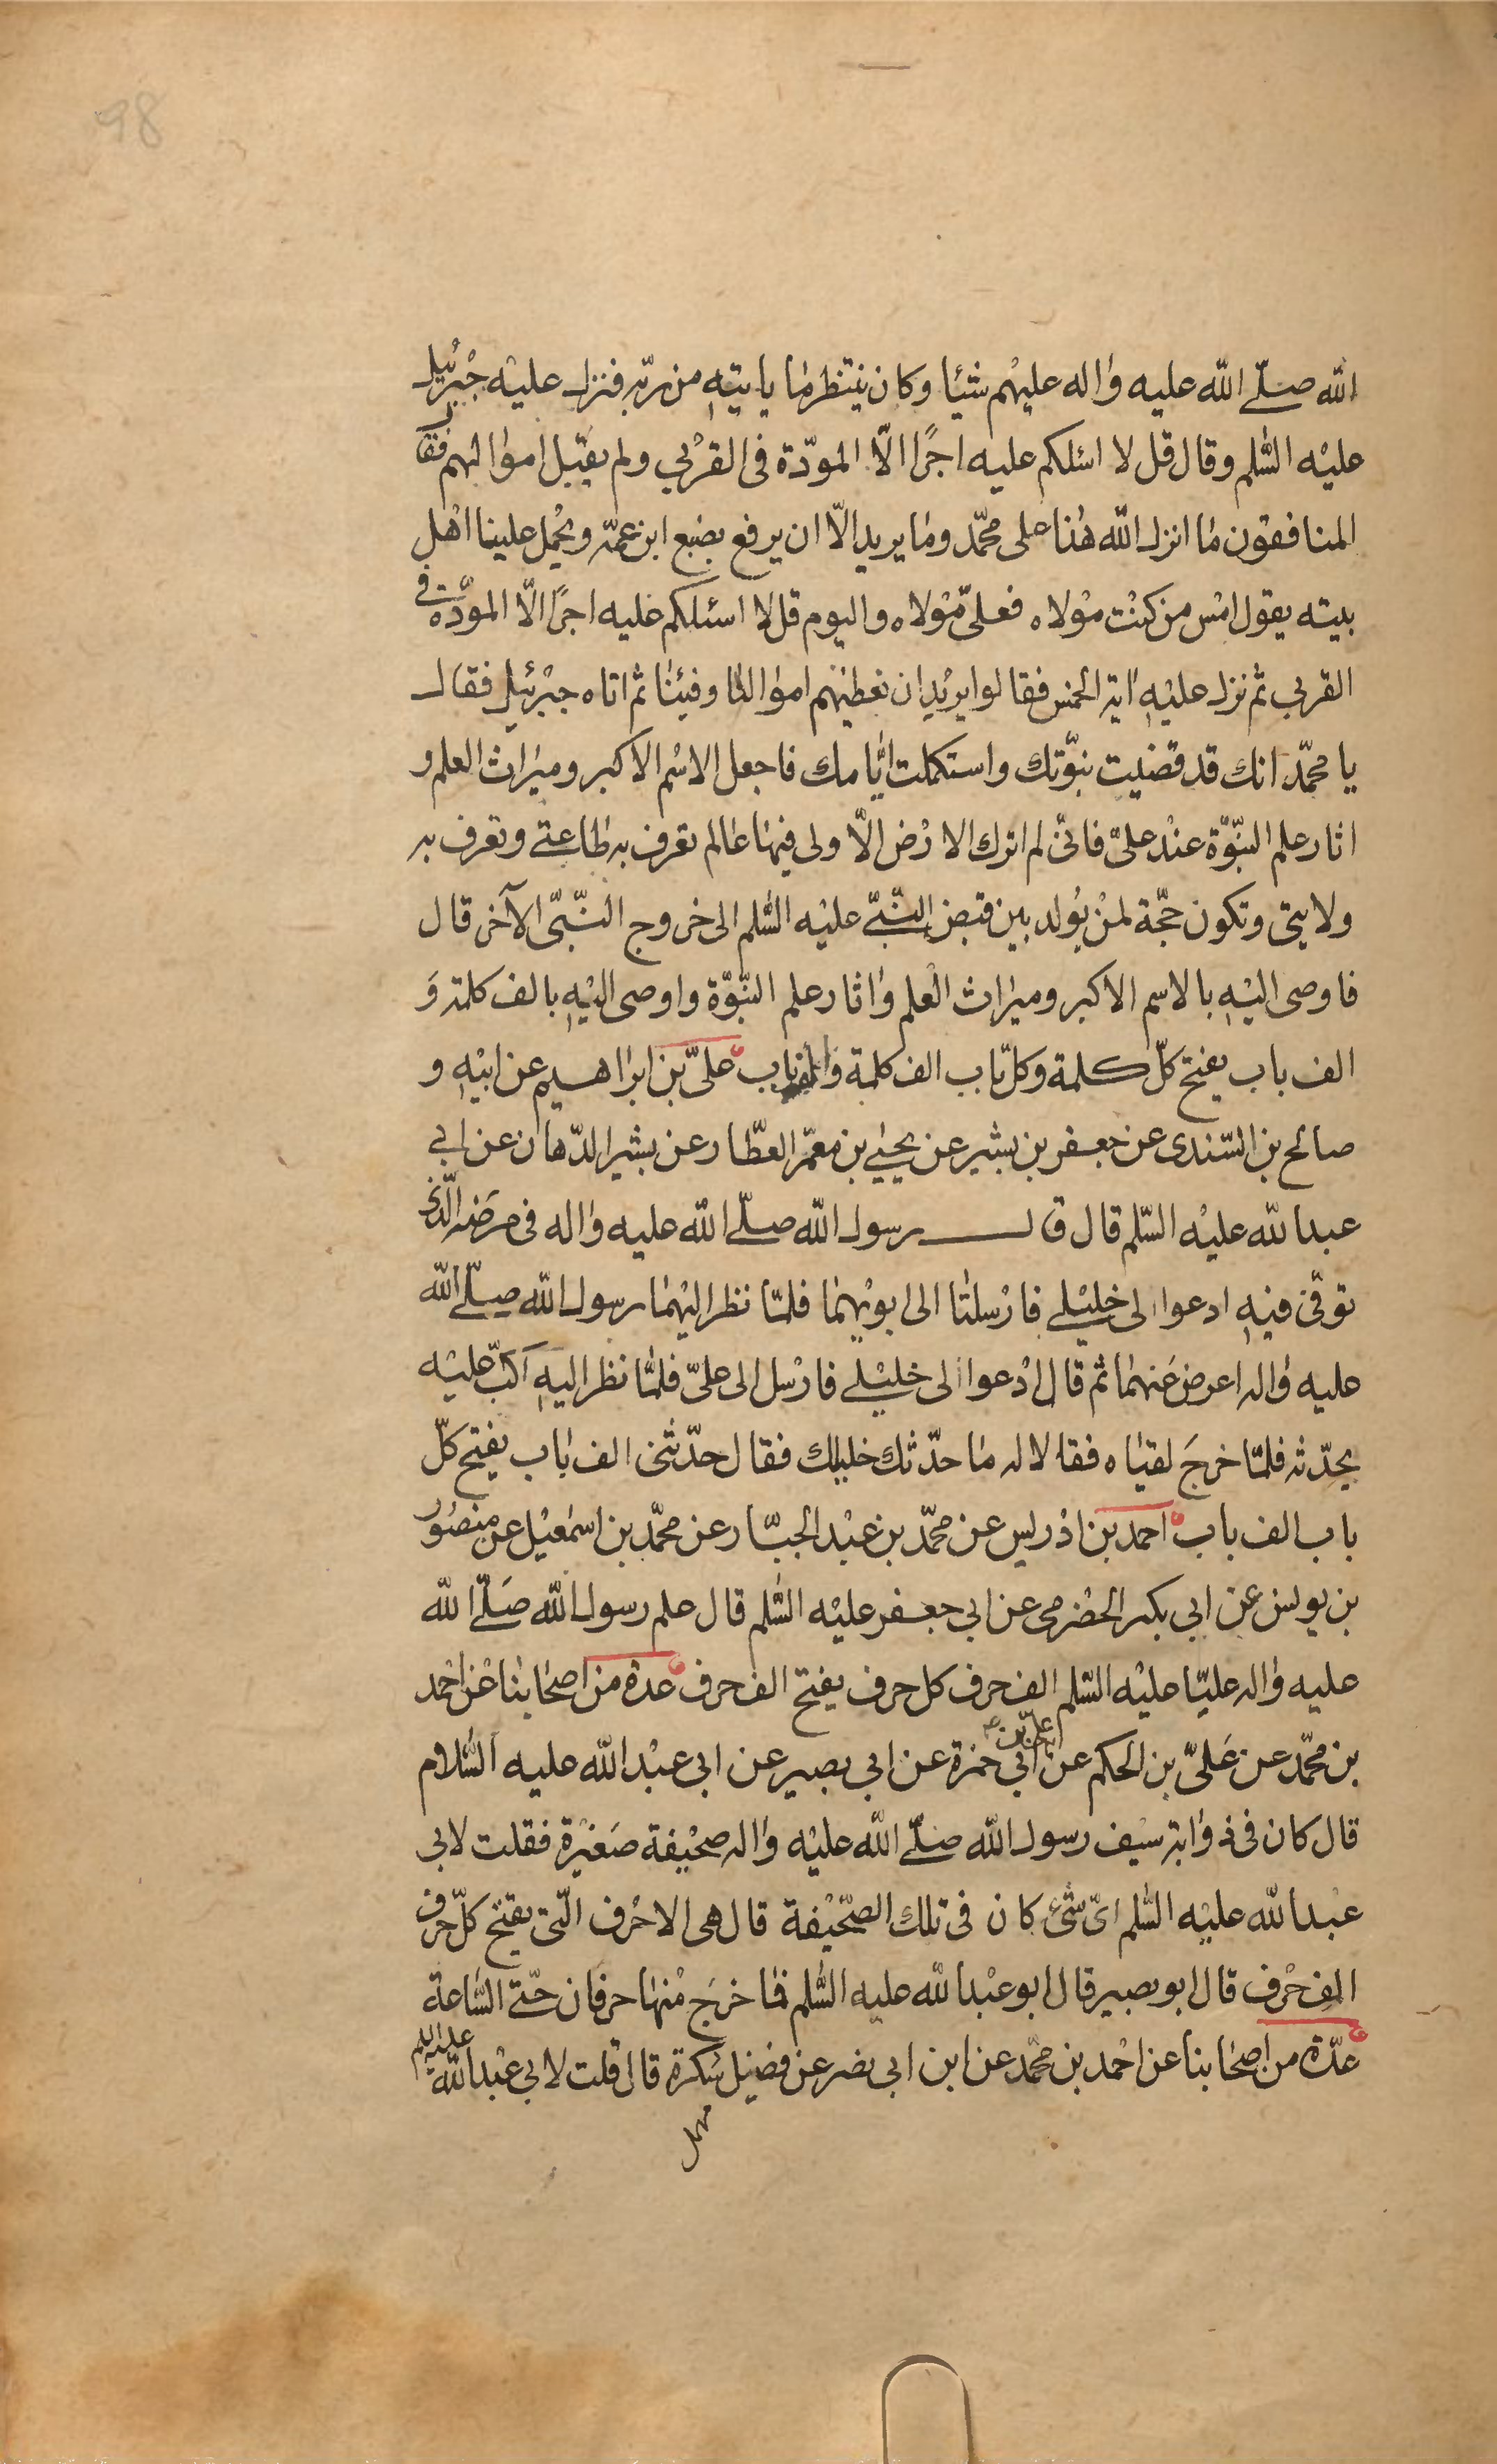 98
الله صلّى الله عليه واله عليهم شيئا وكان ينتظر ما ياتيه من ربّه فنزل عليه جبرئيل
عليه السّلم وقال قل لا اسئلكم عليه اجرًا الّا المودّة فى القربي ولم يقبل اموالهم فقال
المنافقون ما انزل الله هذا على محمّد وما يريد الّا ان يرفع بضبع ابن عمّه ويحمل علينا اهل
بيته يقول امس من كنت مولاه فعلىّ مولاه واليوم قل لا اسئلكم عليه اجرًا الّا المودّة فى
القربي ثم نزل عليه اية الخمس فقالوا يريد ان نعطيهم اموالنا وفيئنا ثم اتاه جبرئيل فقال
يا محمّد انك قد قضيت نبوّتك واستكملت ايّامك فاجعل الاسم الاكبر وميراث العلم و
اثار علم النبّوّة عند علىّ فانّى لم اترك الارض الّا ولى فيها عالم تعرف به طاعتى وتعرف به
ولايتى وتكون حجّة لمن يولد بين قبض النّبىّ عليه السّلم الى خروج النّبىّ الآخر قال
فاوصى اليه بالاسم الاكبر وميراث العلم واثار علم النبّوّة واوصى اليه بالف كلمة و
الف باب يفتح كلّ كلمة وكلّ باب الف كلمة والف باب علىّ بن ابراهيم عن ابيه و
صالح بن السّندى عن جعفر بن بشير عن يحيى بن معمّر العطّار عن بشير الدّهان عن ابي
عبدالله عليه السّلم قال قال رسول الله صلّى الله عليه واله فى مرضه الّذى
توفّى فيه ادعوا لى خليلى فارسلتا الى ابويهما فلمّا نظر اليهما رسول الله صلّى الله
عليه واله اعرض عنهما ثم قال ادعوا لى خليلى فارسل الى علىّ فلمّا نظر اليه اكبّ عليه
يحدّثه فلمّا خرج لقياه فقالا له ما حدّثك خليلك فقال حدّثنى الف باب يفتح كلّ
باب الف باب احمد بن ادريس عن محمّد بن عبد الجبّار عن محمّد بن اسمعيل عن منصور
بن يونس عن ابي بكر الحضرمى عن ابي جعفر عليه السّلم قال علم رسول الله صلّى الله
عليه واله عليّا عليه السّلم الف حرف كل حرف يفتح الف حرف عدة من اصحابنا عن احمد
بن محمّد عن علىّ بن الحكم عن علىّ بن ابي حمزة عن ابي بصير عن ابي عبد الله عليه السّلام
قال كان فى ذوابة سيف رسول الله صلّى الله عليه واله صحيفة صغيرة فقلت لابي
عبدالله عليه السّلم اىّ شىء كان فى تلك الصّحيفة قال هى الاحرف الّتى يفتح كلّ حرف
الف حرف قال ابو بصير قال ابو عبدالله عليه السّلم فما خرج منها حرفان حتّى السّاعة
عدّة من اصحابنا عن احمد بن محمّد عن ابن ابي نصر عن فضيل سكرة قال قلت لابي عبدالله عليه السلم